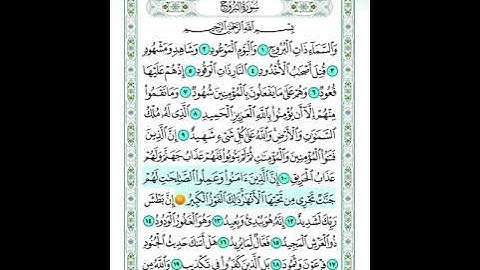 سُورَةُ البُرُوجِ
بِسْمِ ٱللَّهِ ٱلرَّحْمَٰنِ ٱلرَّحِيمِ
وَٱلسَّمَآءِ ذَاتِ ٱلْبُرُوجِ ١ وَٱلْيَوْمِ ٱلْمَوْعُودِ ٢ وَشَاهِدٍ وَمَشْهُودٍ
٣ قُتِلَ أَصْحَٰبُ ٱلْأُخْدُودِ ٤ ٱلنَّارِ ذَاتِ ٱلْوَقُودِ ٥ إِذْ هُمْ عَلَيْهَا
قُعُودٌ ٦ وَهُمْ عَلَىٰ مَا يَفْعَلُونَ بِٱلْمُؤْمِنِينَ شُهُودٌ ٧ وَمَا نَقَمُوا۟
مِنْهُمْ إِلَّآ أَن يُؤْمِنُوا۟ بِٱللَّهِ ٱلْعَزِيزِ ٱلْحَمِيدِ ٨ ٱلَّذِى لَهُۥ مُلْكُ
ٱلسَّمَٰوَٰتِ وَٱلْأَرْضِ وَٱللَّهُ عَلَىٰ كُلِّ شَىْءٍ شَهِيدٌ ٩ إِنَّ ٱلَّذِينَ
فَتَنُوا۟ ٱلْمُؤْمِنِينَ وَٱلْمُؤْمِنَٰتِ ثُمَّ لَمْ يَتُوبُوا۟ فَلَهُمْ عَذَابُ جَهَنَّمَ وَلَهُمْ
عَذَابُ ٱلْحَرِيقِ ١٠ إِنَّ ٱلَّذِينَ ءَامَنُوا۟ وَعَمِلُوا۟ ٱلصَّٰلِحَٰتِ لَهُمْ
جَنَّٰتٌ تَجْرِى مِن تَحْتِهَا ٱلْأَنْهَٰرُ ذَٰلِكَ ٱلْفَوْزُ ٱلْكَبِيرُ إِنَّ بَطْشَ
رَبِّكَ لَشَدِيدٌ ١٢ إِنَّهُۥ هُوَ يُبْدِئُ وَيُعِيدُ ١٣ وَهُوَ ٱلْغَفُورُ ٱلْوَدُودُ ١٤
ذُو ٱلْعَرْشِ ٱلْمَجِيدُ ١٥ فَعَّالٌ لِّمَا يُرِيدُ ١٦ هَلْ أَتَىٰكَ حَدِيثُ ٱلْجُنُودِ
١٧ فِرْعَوْنَ وَثَمُودَ ١٨ بَلِ ٱلَّذِينَ كَفَرُوا۟ فِى تَكْذِيبٍ ١٩ وَٱللَّهُ مِن